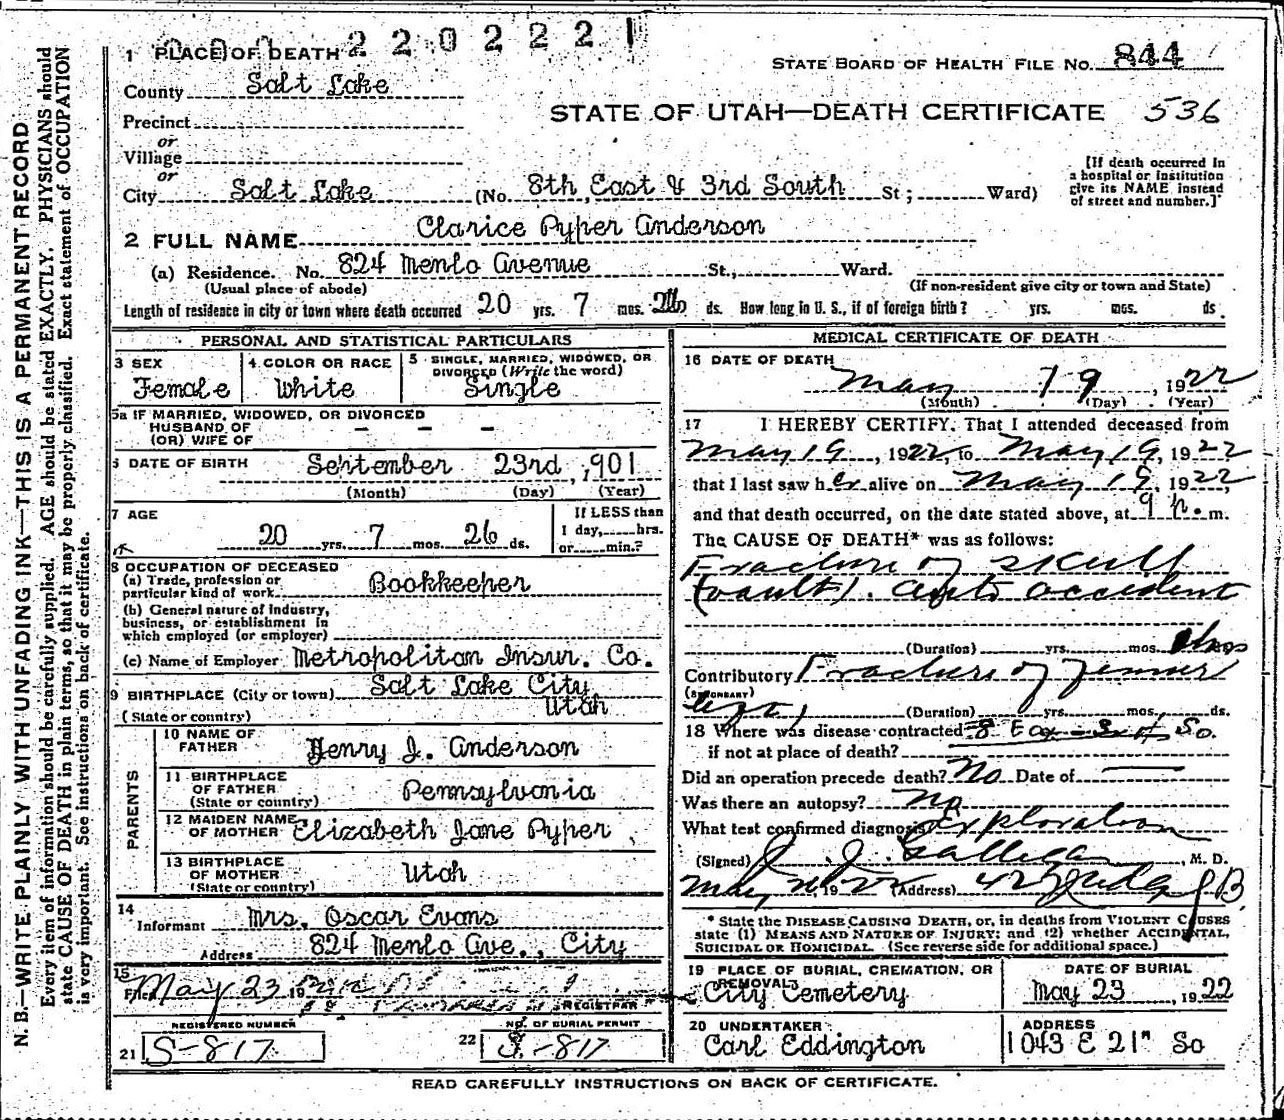 220221
1 PLACE OF DEATH
STATE BOARD OF HEALTH FILE NO. 844
County Salt Lake
STATE OF UTAH—DEATH CERTIFICATE 536
Precinct
or
Village
or
City Salt Lake (No. 8th East & 3rd South St; Ward)
[If death occurred in a hospital or institution give its NAME instead of street and number.]
2 FULL NAME Clarice Pyper Anderson
(a) Residence. No. 824 Menlo Avenue St., Ward.
(Usual place of abode) (If non-resident give city or town and State)
Length of residence in city or town where death occurred 20 yrs. 7 mos. 26 ds. How long in U. S., if of foreign birth? yrs. mos. ds.
PERSONAL AND STATISTICAL PARTICULARS
3 SEX
Female
4 COLOR OR RACE
White
5 SINGLE, MARRIED, WIDOWED, OR
DIVORCED (Write the word)
Single
5a IF MARRIED, WIDOWED, OR DIVORCED
HUSBAND OF
(OR) WIFE OF — — —
6 DATE OF BIRTH September 23rd, 1901
(Month) (Day) (Year)
7 AGE
20 yrs. 7 mos. 26 ds.
If LESS than
1 day, hrs.
or min.?
8 OCCUPATION OF DECEASED
(a) Trade, profession or
particular kind of work Bookkeeper
(b) General nature of industry,
business, or establishment in
which employed (or employer)
(c) Name of Employer Metropolitan Insur. Co.
9 BIRTHPLACE (City or town) Salt Lake City
(State or country) Utah
PARENTS
10 NAME OF
FATHER Henry J. Anderson
11 BIRTHPLACE
OF FATHER
(State or country) Pennsylvania
12 MAIDEN NAME
OF MOTHER Elizabeth Jane Pyper
13 BIRTHPLACE
OF MOTHER
(State or country) Utah
14
Informant Mrs. Oscar Evans
Address 824 Menlo Ave., City
15
Filed May 23 19
REGISTRAR
REGISTERED NUMBER
21 S-817
NO. OF BURIAL PERMIT
22 S-817
MEDICAL CERTIFICATE OF DEATH
16 DATE OF DEATH
May 19, 1922
(Month) (Day) (Year)
17 I HEREBY CERTIFY. That I attended deceased from
May 19, 1922, to May 19, 1922
that I last saw her alive on May 19, 1922,
and that death occurred, on the date stated above, at 9 p.m.
The CAUSE OF DEATH* was as follows:
Fracture of skull
(vault). auto accident
(Duration) yrs. mos.
Contributory Fracture of femur
(SECONDARY)
(Duration) yrs. mos. ds.
18 Where was disease contracted 8 East - 3rd So.
if not at place of death?
Did an operation precede death? No Date of —
Was there an autopsy? no
What test confirmed diagnosis? Exploration
(Signed) J. J. Galligan, M. D.
May 1922 (Address) Judge B
* State the DISEASE CAUSING DEATH, or, in deaths from VIOLENT CAUSES
state (1) MEANS AND NATURE OF INJURY; and (2) whether ACCIDENTAL,
SUICIDAL OR HOMICIDAL. (See reverse side for additional space.)
19 PLACE OF BURIAL, CREMATION, OR
REMOVAL
City Cemetery
DATE OF BURIAL
May 23, 1922
20 UNDERTAKER
Carl Eddington
ADDRESS
1043 E 21" So
READ CAREFULLY INSTRUCTIONS ON BACK OF CERTIFICATE.
N. B.—WRITE PLAINLY WITH UNFADING INK—THIS IS A PERMANENT RECORD
Every item of information should be carefully supplied. AGE should be stated EXACTLY. PHYSICIANS should
state CAUSE OF DEATH in plain terms, so that it may be properly classified. Exact statement of OCCUPATION
is very important. See instructions on back of certificate.